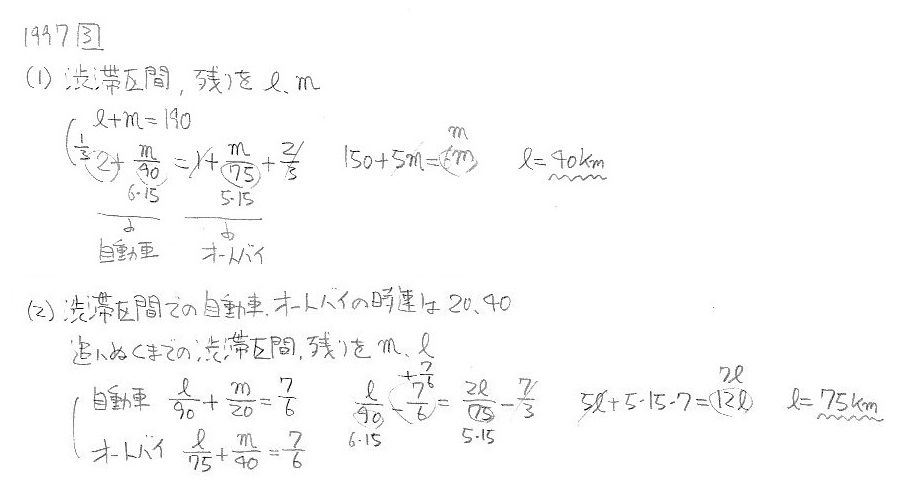 1997 3
(1) 渋滞区間, 残りを l、m
l+m=190
1/3 2+ m/90 = 1+ m/75 + 2/3 150+5m=6m m l=40km
6・15 5・15
自動車 オートバイ
(2) 渋滞区間での自動車、オートバイの時速は20、40
追いぬくまでの渋滞区間, 残りを m、l
自動車 l/90 + m/20 = 7/6 l/90 - 7/6 +7/6 = 2l/75 - 7/3 5l+5・15・7=12l 7l l=75km
6・15 5・15
オートバイ l/75 + m/40 = 7/6